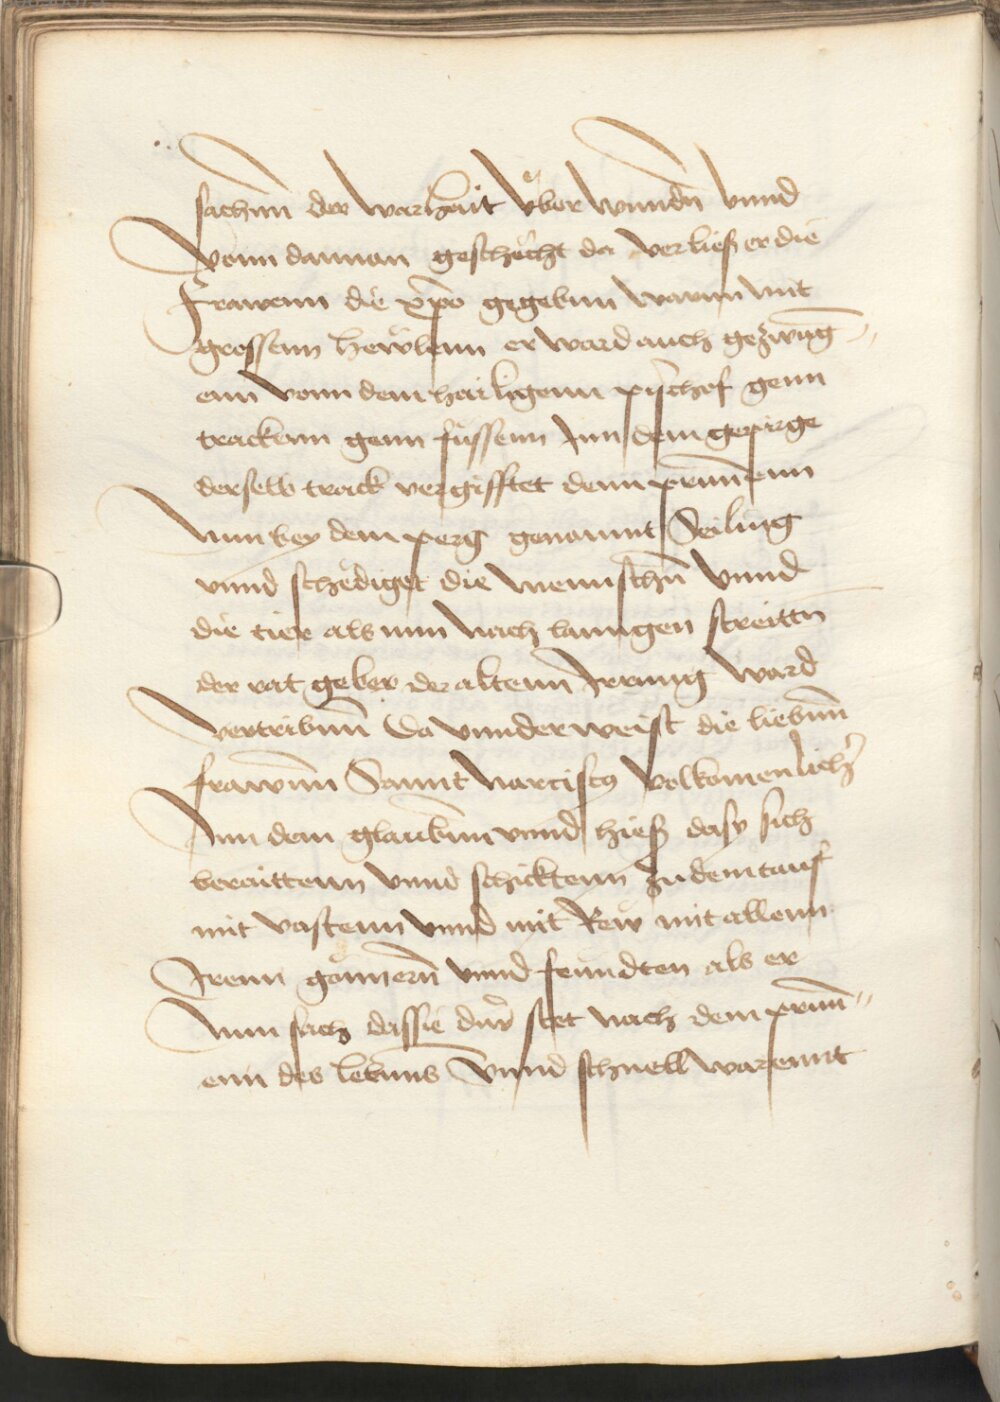 sachenn der warhait vͤber wunndn̄ vnnd
vonn dannan geschecht da verließ er die
Frawenn die xp̄o gegebnn warnn mit
grossem hewlenn er ward auch gezwūg=
enn vonn dem hailigenn pischof genn
trackenn genn fu͑ssenn Inn dem gepirge
derselb track vergifftet denn prūnenn
Nun bey dem perg genannt Seiling
vnnd schediget die mennschn̄ vnnd
die tier als nun nach lanngen streittn
der rat geber der altenn Irrung ward
vertribnn̄ Da vnnderweist die liebnn̄
frawnn̄ Sannt narciscꝰ volkomenlich͛
Inn dem glaubnn vnnd hieß dasy sich
beraittenn vnnd schicktenn zu dem tauf
mit vastenn vnnd mit Rew mit allenn
Irenn gönnern̄ vnnd feundten als er
Nun sach dassie dur͛ stet nach dem prūn=
enn des lebnns Vnnd schnell warennt